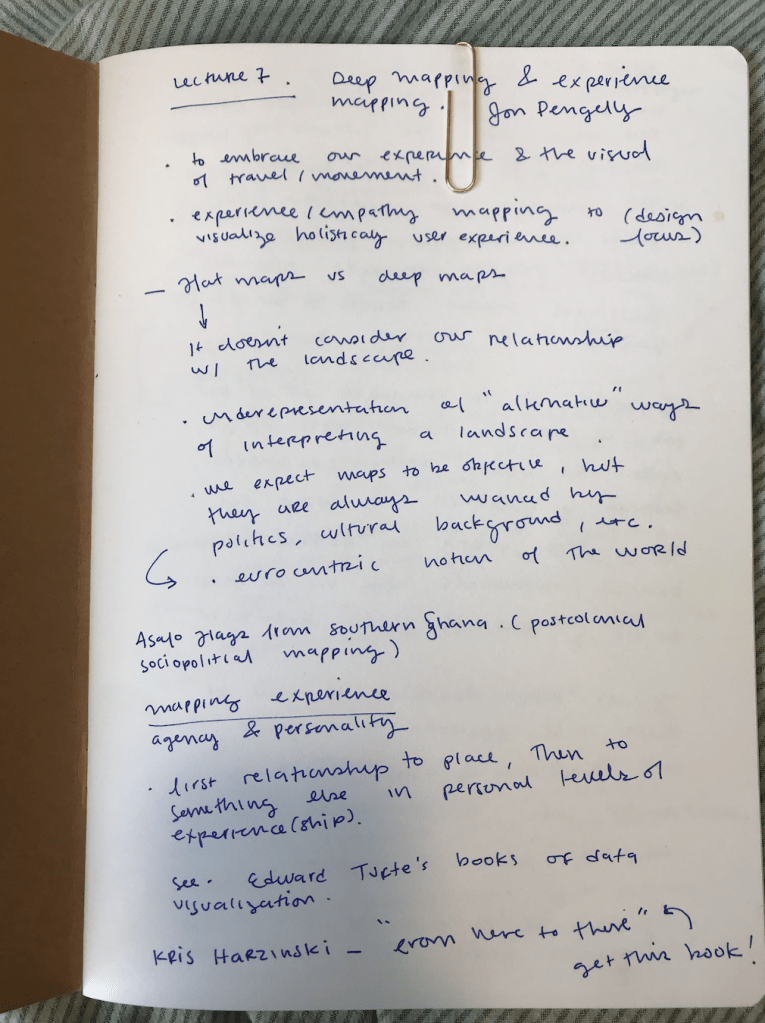 Lecture 7. Deep mapping & experience
mapping. Jon Pengelly
• to embrace our experience & the visual
of travel / movement.
• experience / empathy mapping to (design
visualize holisticaly user experience. focus)
— Flat maps vs deep maps
↓
It doesn't consider our relationship
w/ the landscape.
• underepresentation of "alternative" ways
of interpreting a landscape.
• we expect maps to be objective, but
they are always by
politics, cultural background, etc.
• eurocentric notion of the world
Asafo flags from southern Ghana. (postcolonial
sociopolitical mapping)
mapping experience
agency & personality
• first relationship to place, then to
something else in personal levels of
experience(ship).
see. Edward Tufte's books of data
visualization.
Kris Harzinski — "From here to there"
get this book!